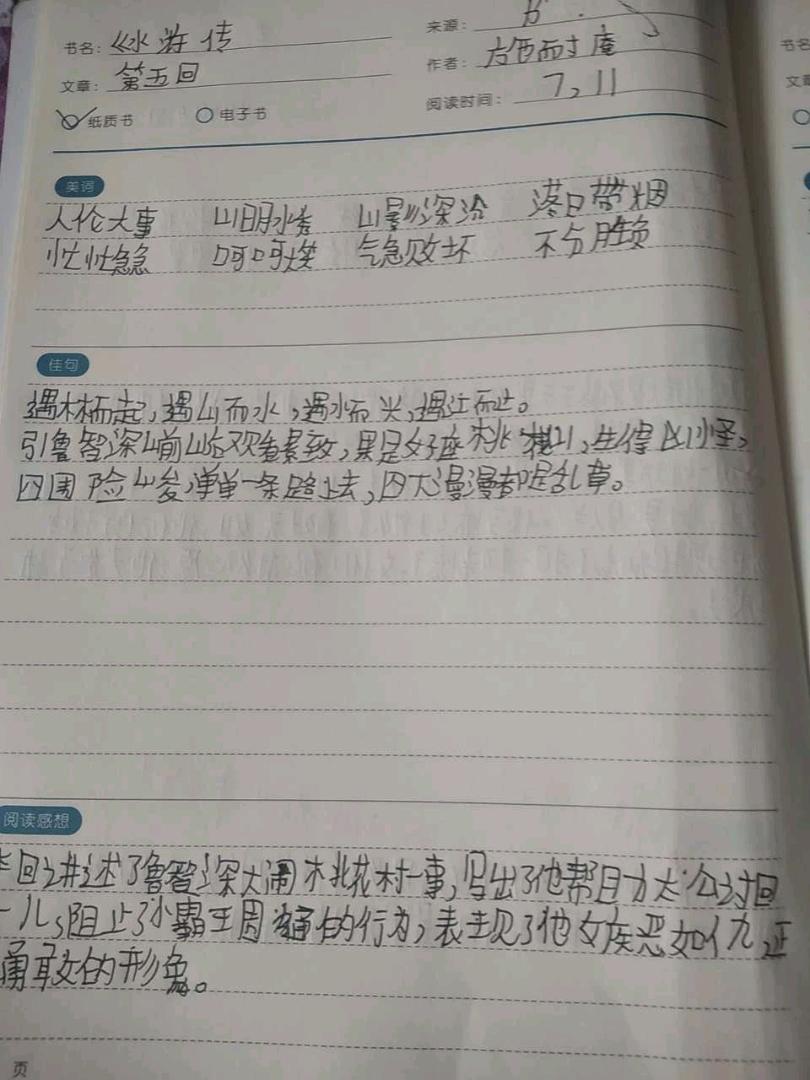 书名：《水浒传
来源：
文章：第五回
作者：施耐庵
纸质书 电子书
阅读时间：7，11
书名
文章
美词
人伦大事 山明水秀 山影深沉 落日带烟
忙忙急急 呵呵大笑 气急败坏 不分胜负
佳句
遇林而起，遇山而水，遇水而兴，遇江而止。
引鲁智深山前山后观看景致，果是好座桃花山，生得凶怪，
四围险峻，单单一条路上去，四大漫漫都是乱草。
阅读感想
回讲述了鲁智深大闹桃花村一事，写出了他帮助太公讨回
儿，阻止了小霸王周通的行为，表现了他嫉恶如仇，正
勇敢的形象。
页